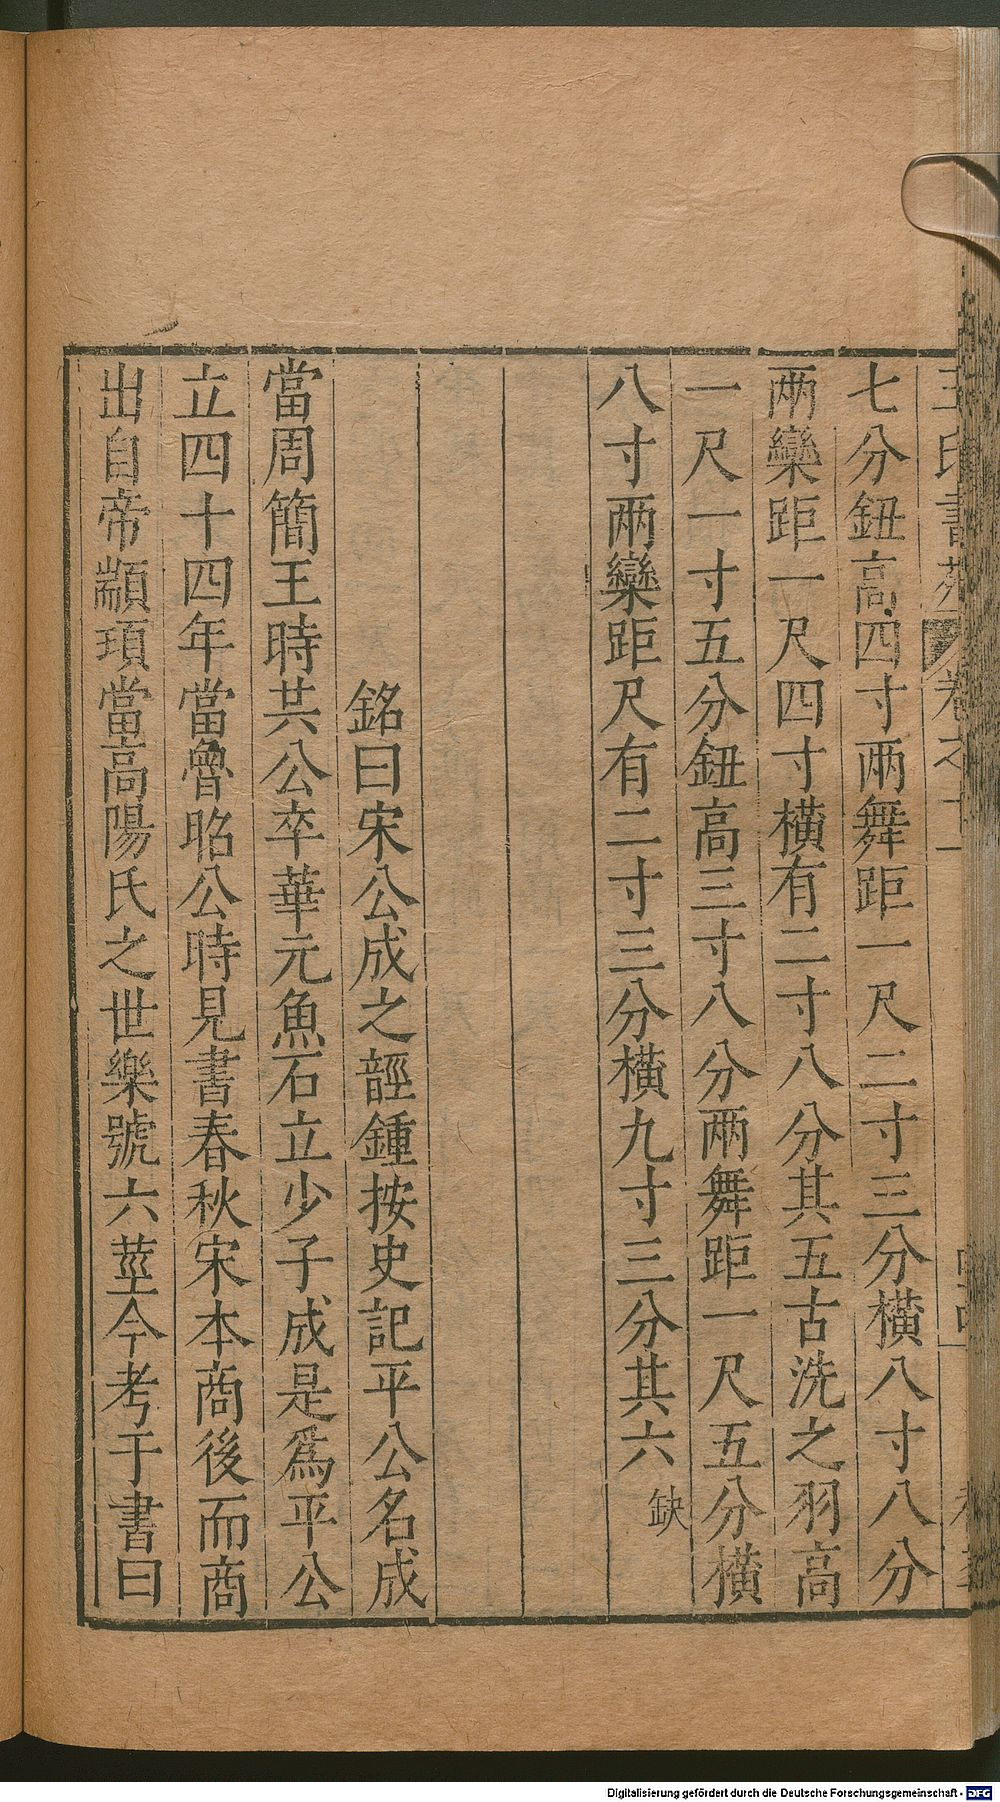 七分鈕高四寸兩舞距一尺二寸三分橫八寸八分
兩欒距一尺四寸橫有二寸八分其五古洗之羽高
一尺一寸五分鈕高三寸八分兩舞距一尺五分橫
八寸兩欒距尺有二寸三分橫九寸三分其六缺
銘曰宋公成之䪫鍾按史記平公名成
當周簡王時共公卒華元魚石立少子成是爲平公
立四十四年當魯昭公時見書春秋宋本商後而商
出自帝顓頊當高陽氏之世樂號六莖今考于書曰
Digitalisierung gefördert durch die Deutsche Forschungsgemeinschaft - DFG